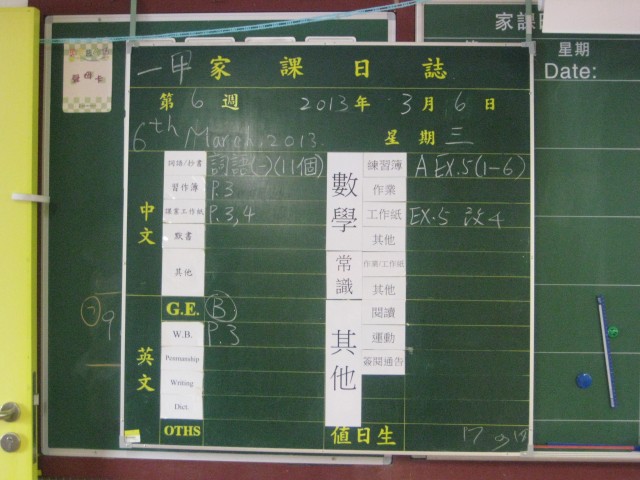 一甲 家課日誌
第 6 週 2013年 3月 6日
6th March, 2013. 星期三
中文
詞語/抄書 詞語(一)(11個)
習作簿 P.3
課業工作紙 P.3,4
默書
其他
英文
G.E. B
W.B. P.3
Penmanship
Writing
Dict.
OTHS
數學
練習簿 A EX.5(1-6)
作業
工作紙 EX.5 改4
其他
常識
作業/工作紙
其他
其他
閱讀
運動
簽閱通告
值日生 17
家課日
星期
Date:
9